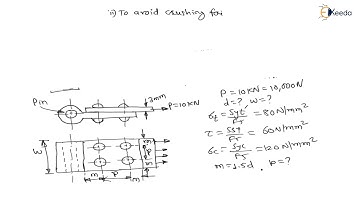 ii) To avoid crushing fai
Ekeeda
Pin
3mm
P=10KN
P=10KN=10,000N
d=? , w=?
σt = Syt/FS = 80N/mm²
τ = Ssy/FS = 60N/mm²
σc = Syc/FS = 120N/mm²
m=1.5d , p=?
W
P
m P m